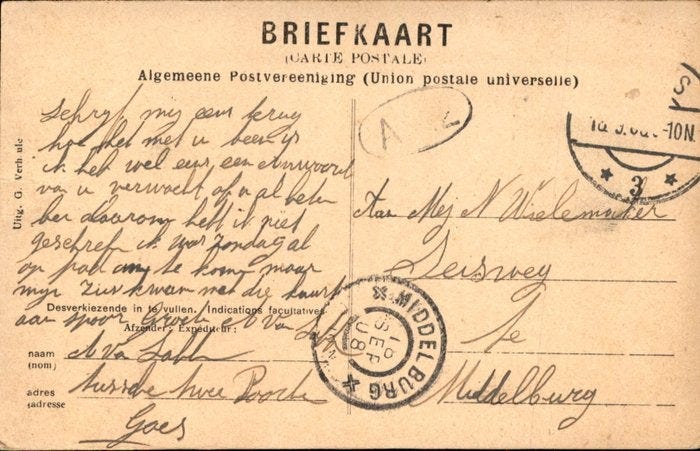 BRIEFKAART
(CARTE POSTALE)
Algemeene Postvereeniging (Union postale universelle)
Schryf mij eens terug
hoe het met u been is
ik heb wel eens een Antwoord
van u verwacht of u al beter
ben daarom heb ik niet
geschreven ik was zondag al
op pad om te kome maar
mijn kwam met die
aan spoor Groete A Van
Desverkiezende in te vullen. Indications facultatives
Afzender: Expéditeur:
naam
(nom)
A Van
adres
(adresse
tussche twee Poorte
Goes
Uitg. G. Verhule
A
10N
3
Aan Mej N Wielemaker
Seisweg
Te
Middelburg
MIDDELBURG
SEP
08